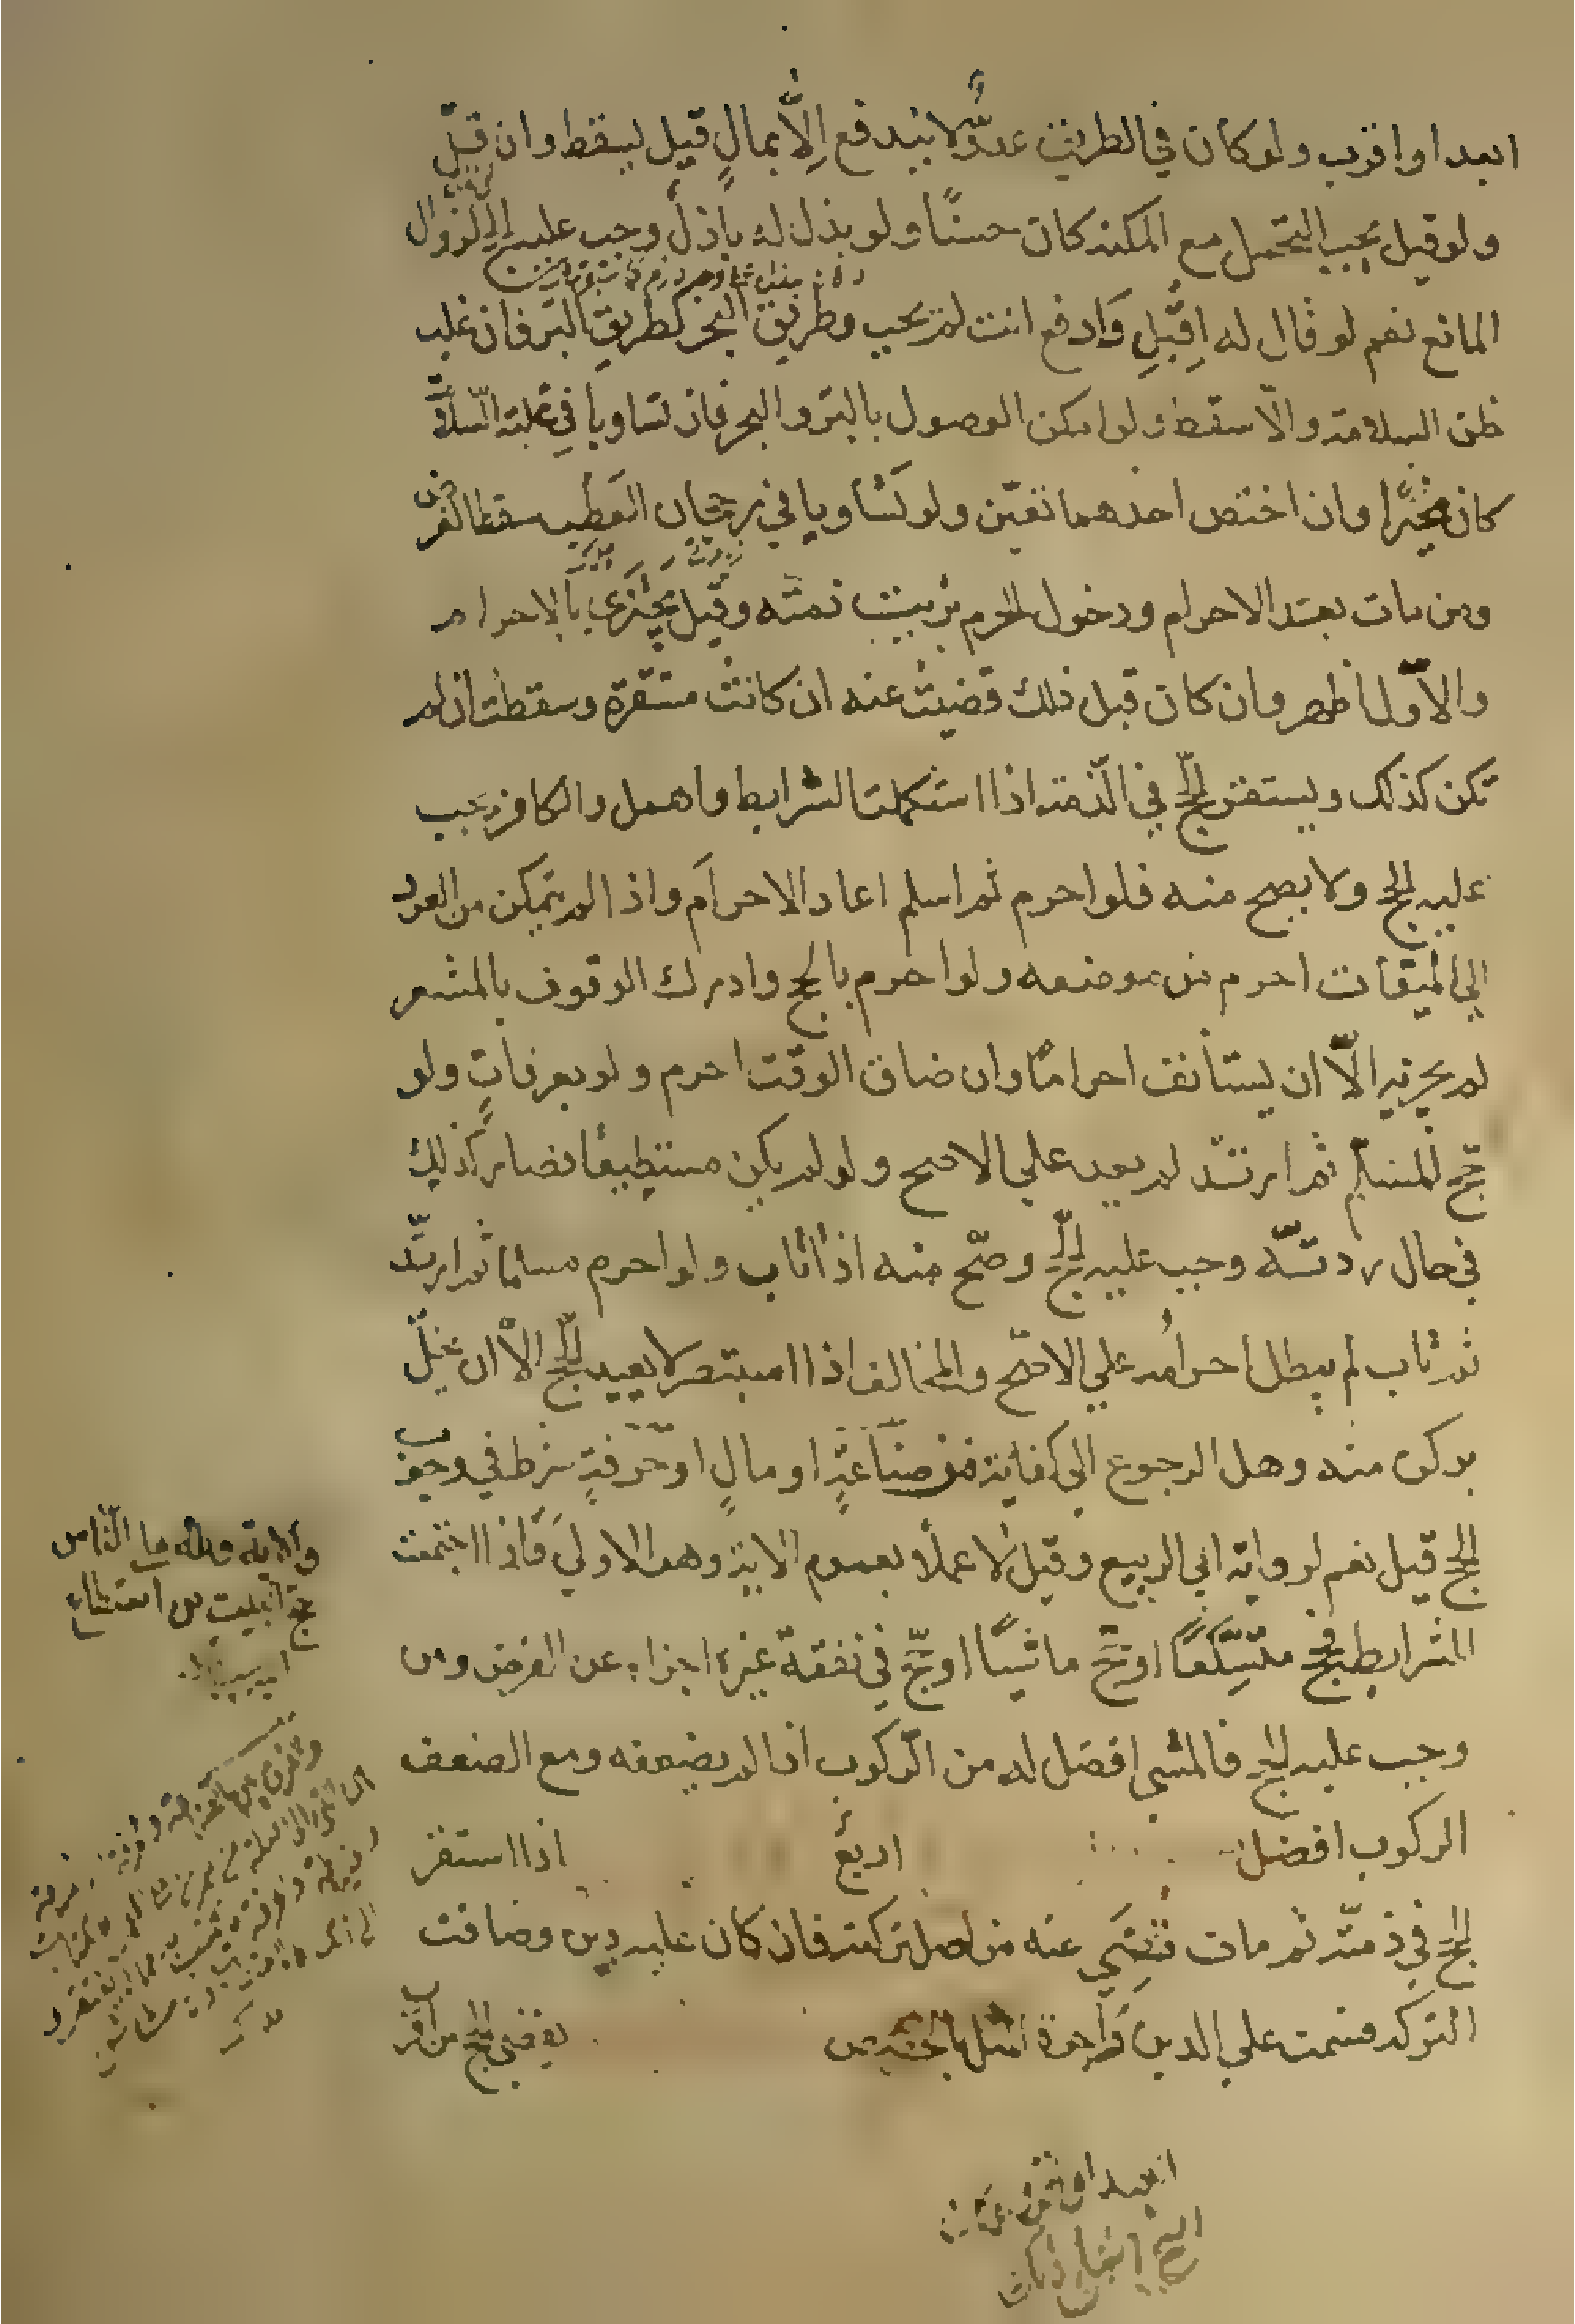 ابعد او اقرب ولو كان في الطريق عدوّ لا يندفع إلّا بمالٍ قيل يسقط وان قلّ
ولو قيل يجب التحمل مع المكنه كان حسنًا ولو بذل له باذل وجب عليه الحج لزوال
المانع نعم لو قال له اِقبَلِ وَادفع انت لم يجب وطريق البحر كطريق البرّ فان غلب
ظن السلامة والّا سقط ولو امكن الوصول بالبرّ والبحر فان تساويا في غلبة السّلامة
كان مخيّرا وان اختص احدهما تعيّن ولو تساويا في رجحان العَطِب سقط الفرض
ومن مات بعد الاحرام ودخول الحرم برئت ذمته وقيل يجتزى بالاحرام
والاوّل أظهر وان كان قبل ذلك قضيت عنه ان كانت مستقرة وسقطت ان لم
تكن كذلك ويستقر الحجّ في الذّمة اذا استكملت الشرايط واهمل والكافر يجب
عليه الحج ولا يصح منه فلو احرم ثم اسلم اعاد الاحرام واذا لم يتمكن من العود
الي الميقات احرم من موضعه ولو احرم بالحج وادرك الوقوف بالمشعر
لم يجزئه الّا ان يستأنف احرامًا وان ضاق الوقت احرم ولو بعرفاتٍ ولو
حجّ المسلم ثم ارتد لم يعد علي الاصح ولو لم يكن مستطيعًا فصار كذلك
في حال ردته وجب عليه الحجّ وصحّ منه اذا تاب ولو احرم مسلما ثم ارتدّ
ثم تاب لم يبطل احرامه علي الاصحّ والمخالف اذا استبصر لا يعيد الحجّ الّا ان يخلّ
بركن منه وهل الرجوع الى كفاية من صناعةٍ او مالٍ او حرفةٍ شرط في وجوب
الحج قيل نعم لرواية ابي الربيع وقيل لا عملًا بعموم الاية وهو الاولي فاذا اجتمعت
الشرايط فحج متسكعًا او حجّ ماشيًا او حجّ في نفقة غيره اجزاه عن الفرض ومن
وجب عليه الحج فالمشي افضل له من الرّكوب اذا لم يضعفه ومع الضعف
الركوب افضل اربع اذا استقر
الحج في ذمّته ثم مات قُضِيَ عنه من اصل تركته فان كان عليه دين وضاقت
التركه قسمت علي الدين واجرة المثل بالحصص يقضى الحج من اقرب
والاية ولله على الناس
حج البيت من استطاع
اليه سبيلا